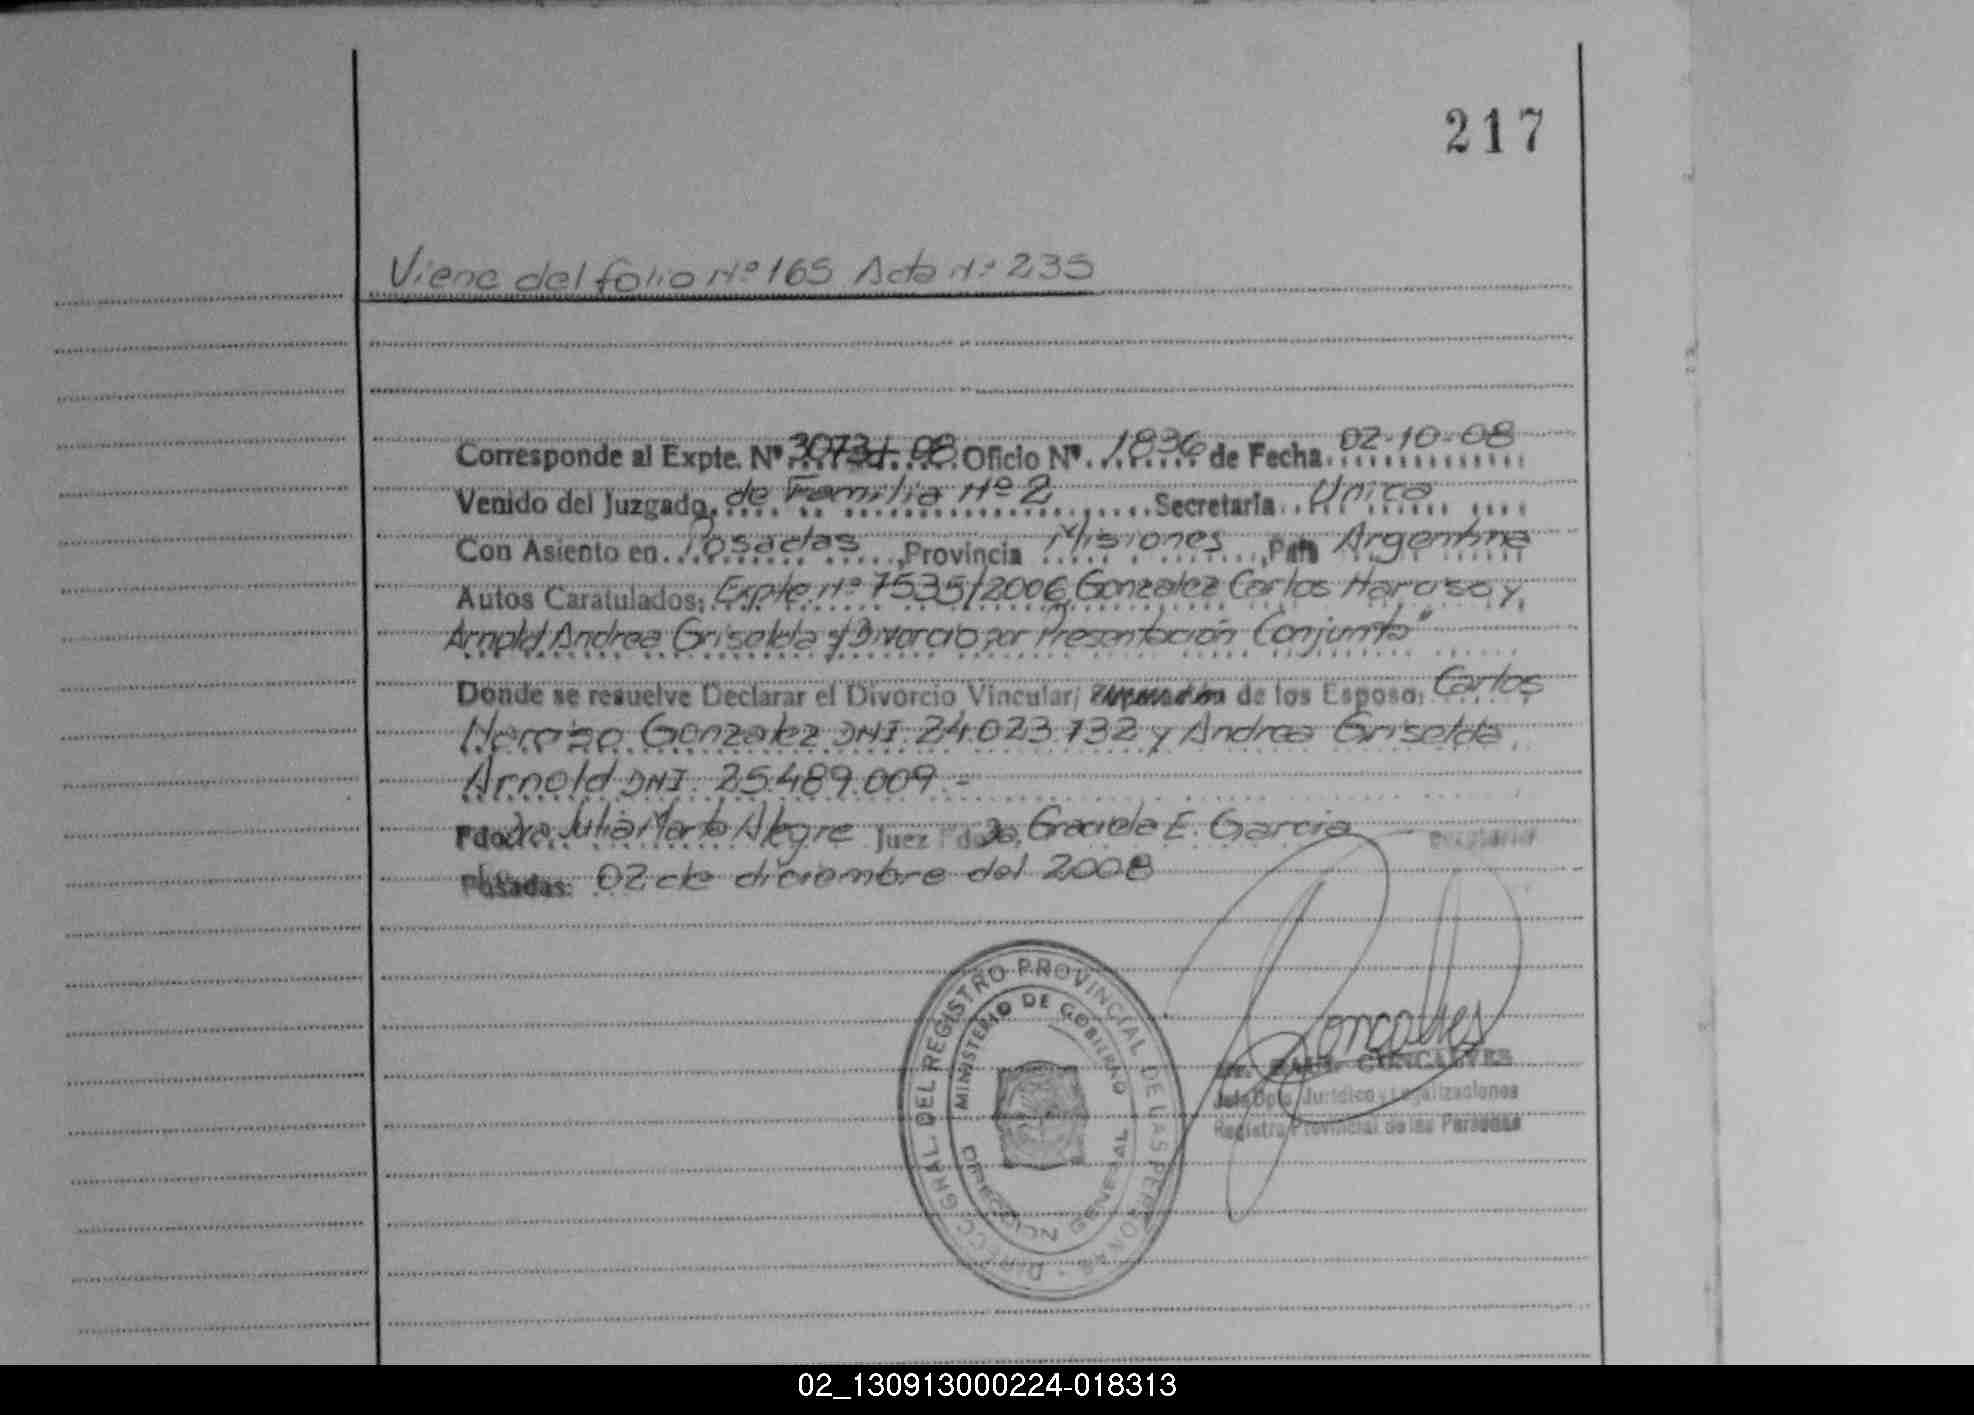 217
Viene del folio Nº 165 Acta Nº 235
Corresponde al Expte. Nº 3073-d-08 Oficio Nº 1836 de Fecha 02-10-08
Venido del Juzgado de Familia Nº 2 Secretaria Unica
Con Asiento en Posadas, Provincia Misiones, País Argentina
Autos Caratulados: Expte Nº 7535/2006 Gonzalez Carlos Narciso y
Arnold Andrea Griselda s/ Divorcio por Presentación Conjunta"
Donde se resuelve Declarar el Divorcio Vincular/ de los Esposo: Carlos
Narciso Gonzalez DNI 24.023.732 y Andrea Griselda
Arnold DNI 25.489.009.-
Fdo: Dra Julia Marta Alegre Juez Fdo Graciela E. Garcia Secretaria
Posadas: 02 de diciembre del 2008
Goncalves
Dr. RAUL GONCALVES
Jefe Dpto. Jurídico y Legalizaciones
Registro Provincial de las Personas
DIRECC. GRAL. DEL REGISTRO PROVINCIAL DE LAS PERSONAS
MINISTERIO DE GOBIERNO
DIRECCION GENERAL
02_130913000224-018313